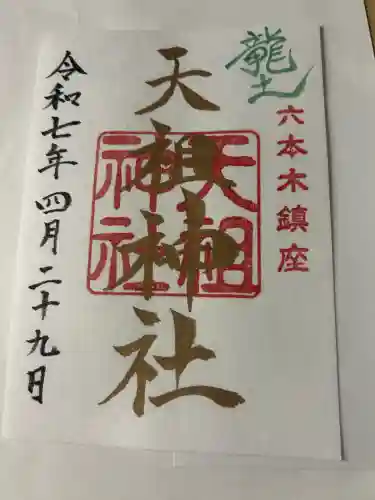 龍土
六本木鎮座
天祖神社
天祖神社
令和七年四月二十九日